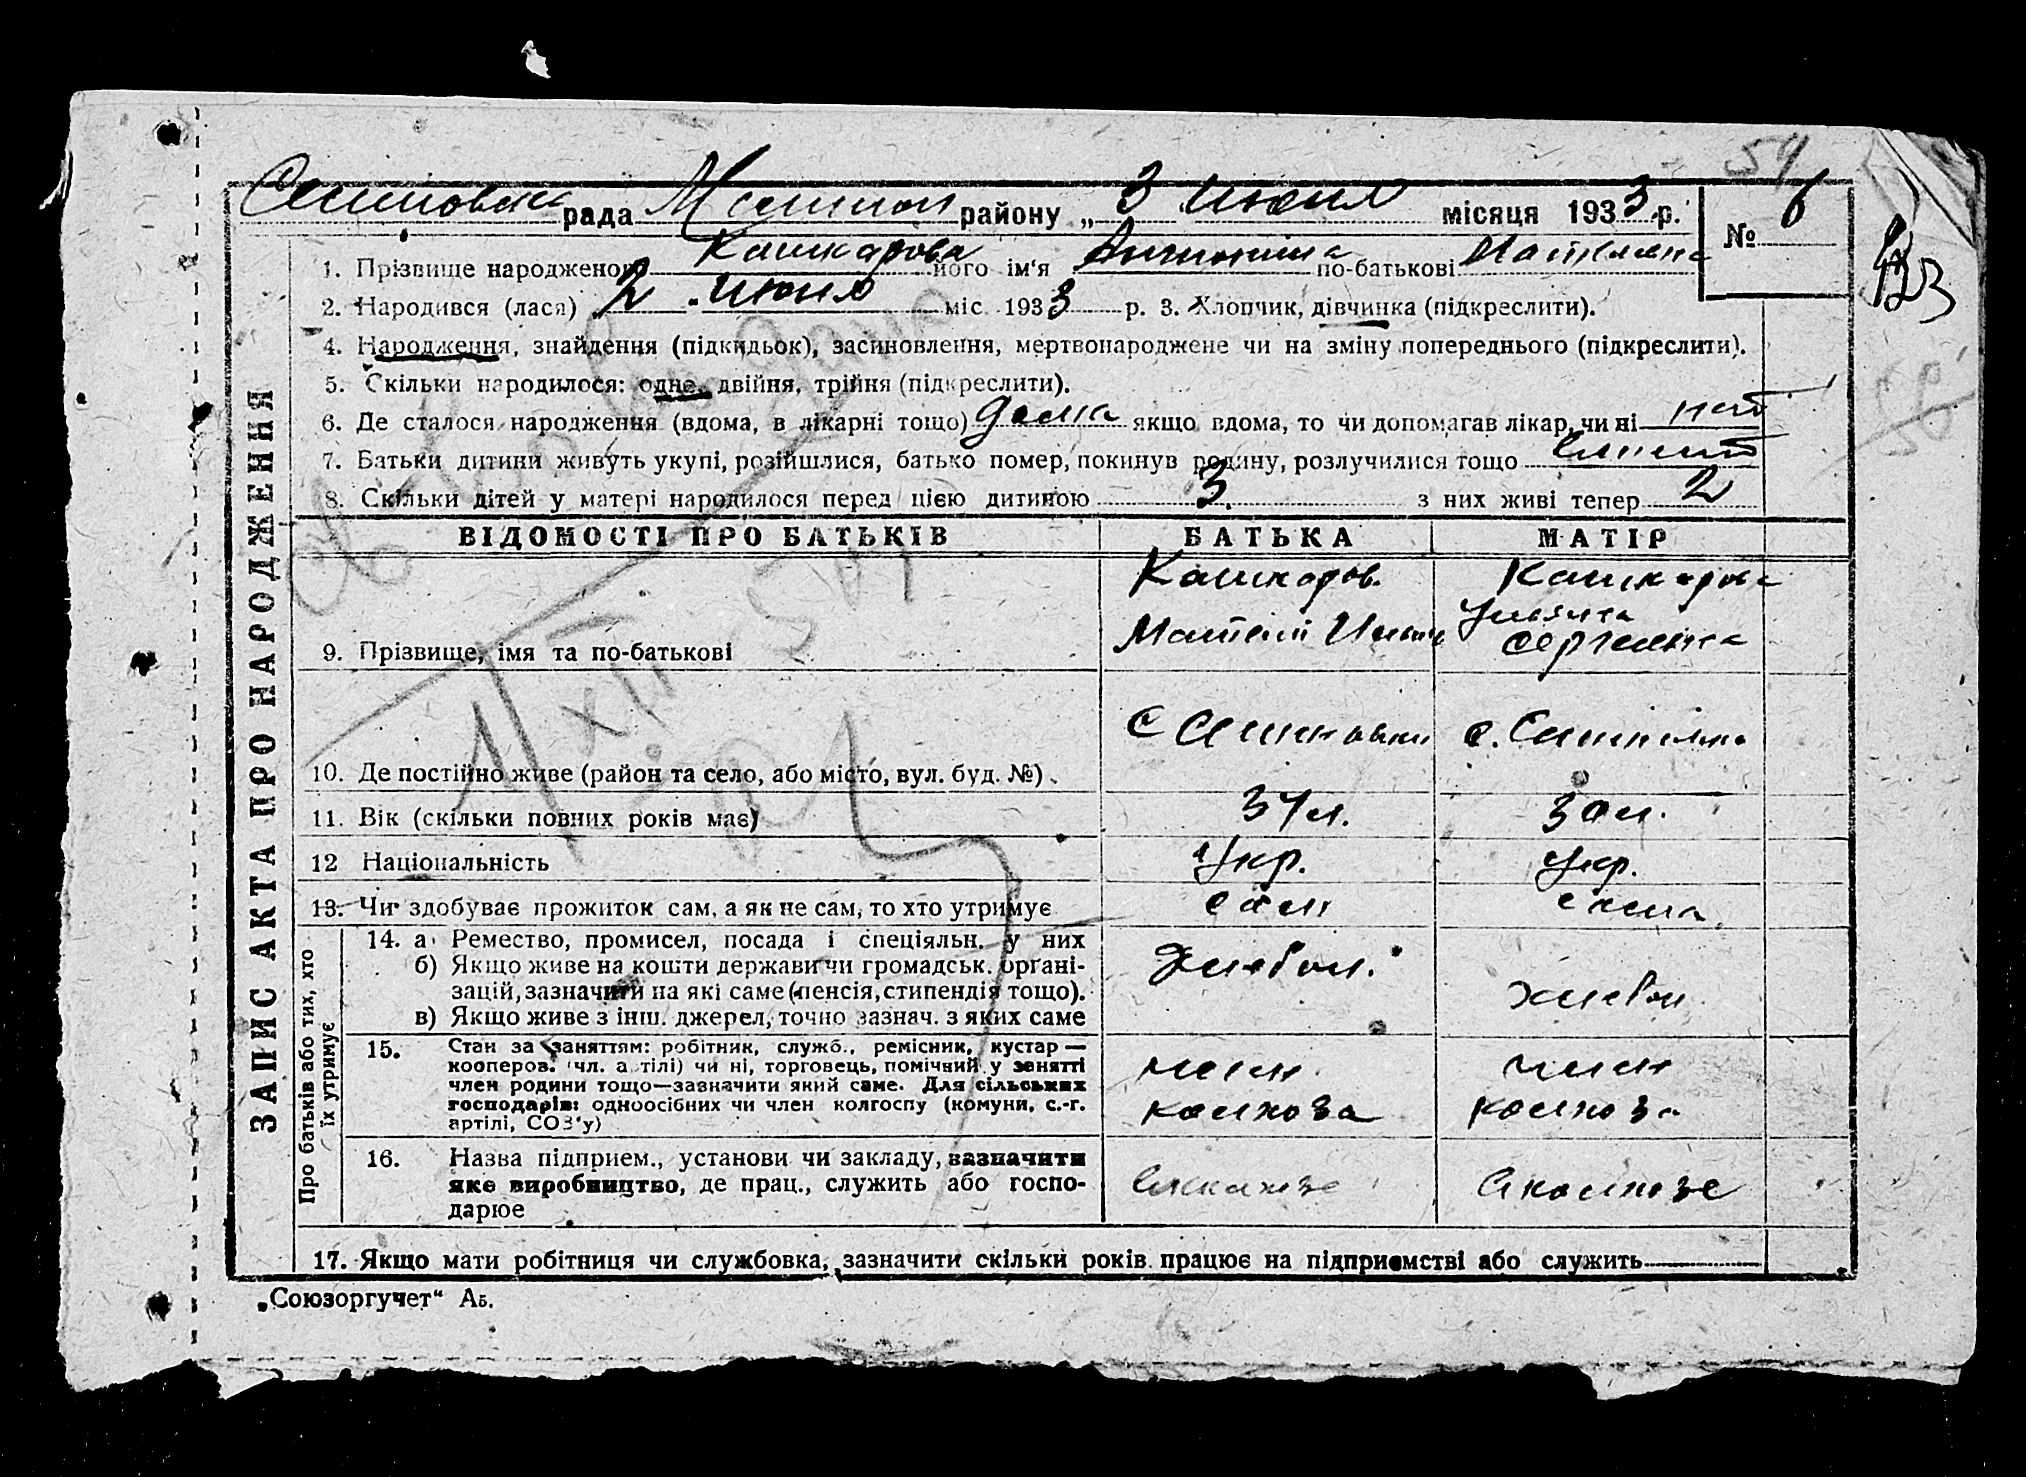 рада района „3 июня місяця 1933 р. № 6
1. Прізвище народженого Кашкарова його ім'я Антонина по-батькові
2. Народився (лася) 2 июня міс 1933 р. 3. Хлопчик, дівчинка (підкреслити).
4. Народження, знайдення (підкидьок), засиновлення, мертвонароджене чи на зміну попереднього (підкреслити).
5. Скільки народилося: одне, двійня, трійня (підкреслити).
6. Де сталося народження (вдома, в лікарні тощо) дома якщо вдома, то чи допомагав лікар, чи ні нет
7. Батьки дитини живуть укупі, розійшлися, батько помер, покинув родину, розлучилися тощо
8. Скільки дітей у матері народилося перед цією дитиною 3 з них живі тепер 2
ЗАПИС АКТА ПРО НАРОДЖЕННЯ
ВІДОМОСТІ ПРО БАТЬКІВ БАТЬКА МАТІР
9. Прізвище, імя та по-батькові Кашкаров Кашкарова
Ульяна
Матвей Сергеевна
10. Де постійно живе (район та село, або місто, вул. буд. №)
11. Вік (скільки повних років має) 37 л. 30 л.
12 Національність Укр. Укр.
13. Чи здобуває прожиток сам, а як не сам, то хто утримує сам сама
Про батьків або тих, хто їх утримує
14. а) Ремество, промисел, посада і спеціяльн. у них
б) Якщо живе на кошти держави чи громадськ. органі-
зацій, зазначити на які саме (пенсія, стипендія тощо).
в) Якщо живе з інш. джерел, точно зазнач. з яких саме
15. Стан за заняттям: робітник, служб., ремісник, кустар —
кооперов. (чл. артілі) чи ні, торговець, помічний у занятті
член родини тощо—зазначити який саме. Для сільських
господарів: одноосібних чи член колгоспу (комуни, с.-г.
артілі, СОЗ'у)
член член
колхоза колхоза
16. Назва підприєм., установи чи закладу, зазначити
яке виробництво, де прац., служить або госпо-
дарює
в колхозе в колхозе
17. Якщо мати робітниця чи службовка, зазначити скільки років працює на підприємстві або служить
„Союзоргучет“ Аб.